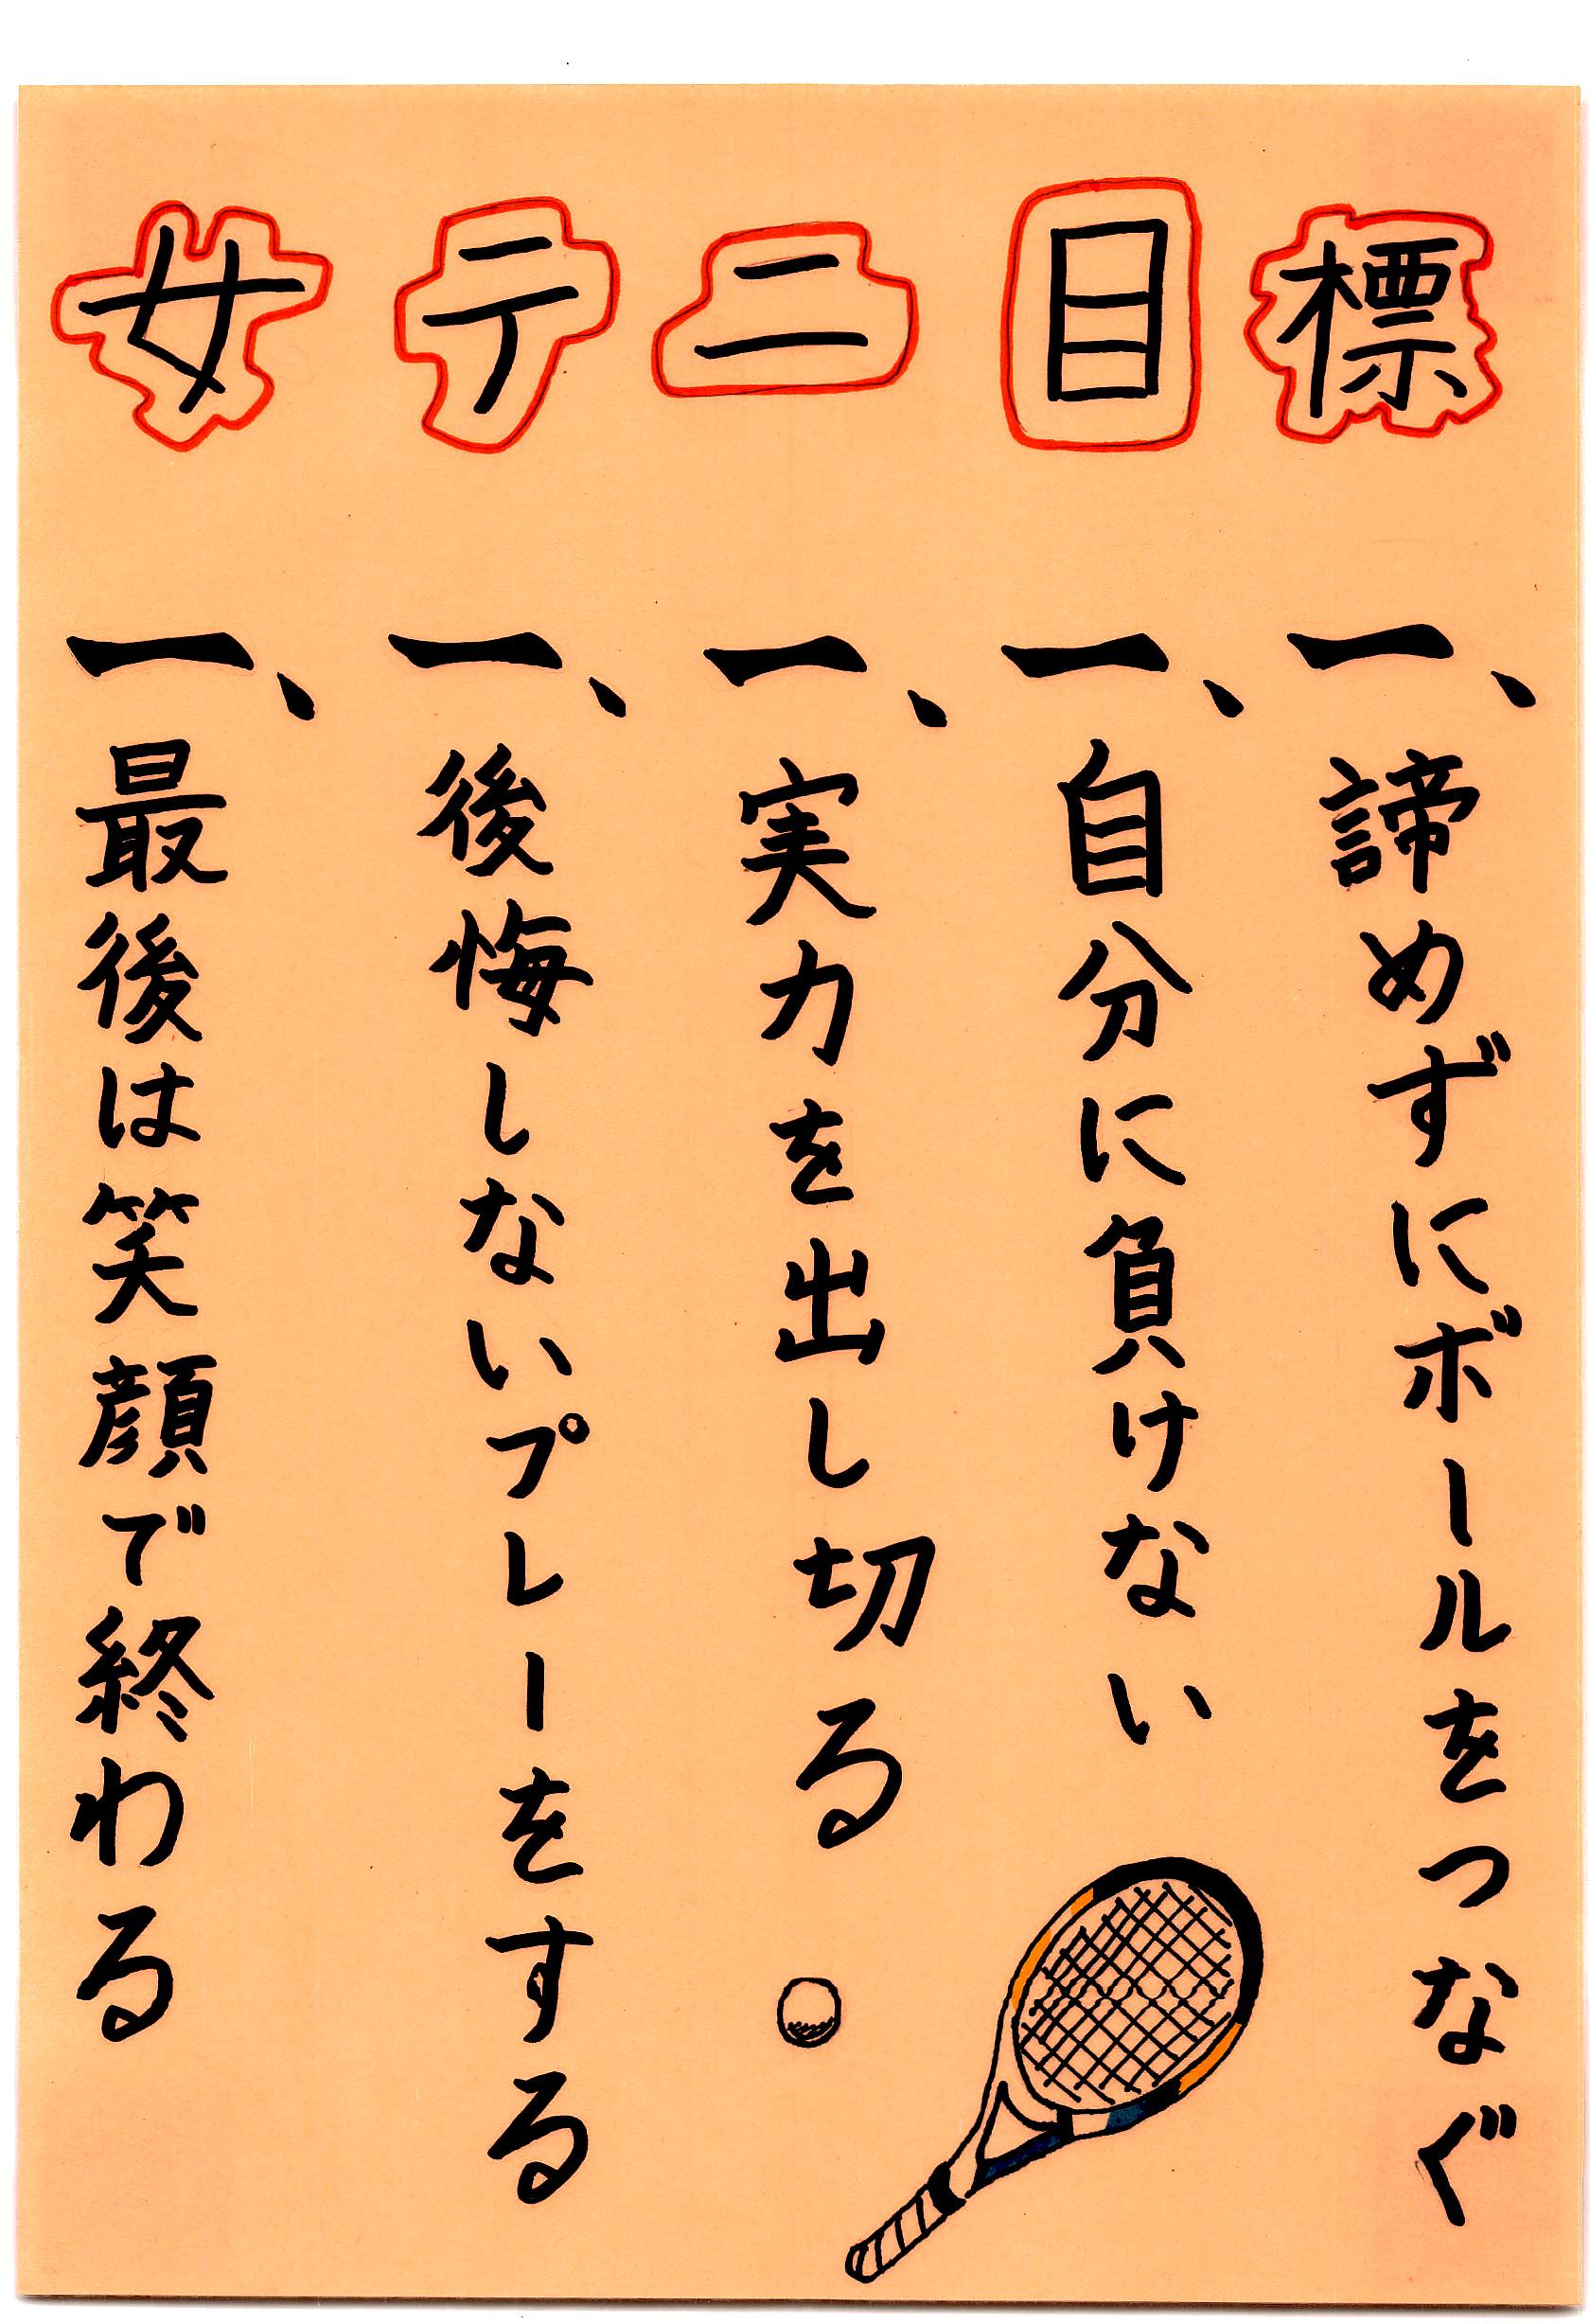 女テニ目標
一、諦めずにボールをつなぐ
一、自分に負けない
一、実力を出し切る
一、後悔しないプレーをする
一、最後は笑顔で終わる